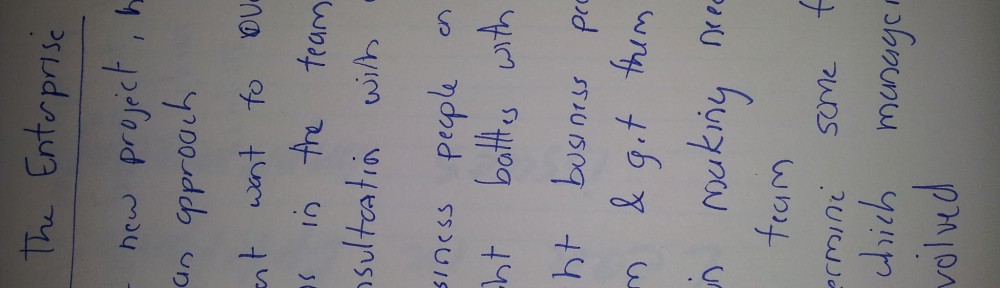 The Enterprise
new project, h
an approach
nt want to ov
s in the team
nsultation with
siness people on
ht battles with
ht business peo
m & get them
in making nee
team
ermine some f
which managi
volved